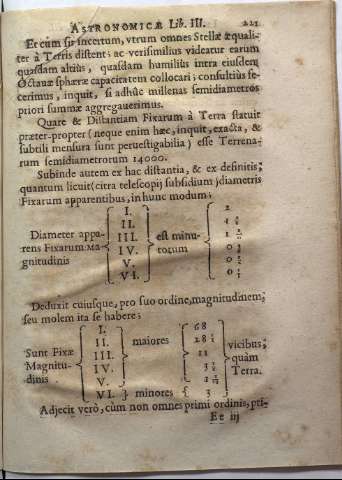 ASTRONOMICÆ Lib. III. 221
Et cum sit incertum, vtrum omnes Stellæ æquali-
ter à Terris distent; ac verisimilius videatur earum
quasdam altius, quasdam humilius intra eiusdem
Octauæ sphæræ capacitatem collocari; consultius se-
cerimus, inquit, si adhuc millenas semidiametros
priori summæ aggregauerimus.
Quare & Distantiam Fixarum à Terra statuit
præter-propter (neque enim hæc, inquit, exacta, &
subtili mensura sunt peruestigabilia) esse Terrena-
rum semidiametrorum 14000.
Subinde autem ex hac distantia, & ex definitis,
quantum licuit (citra telescopij subsidium) diametris
Fixarum apparentibus, in hunc modum;
Diameter appa-
rens Fixarum ma-
gnitudinis
I.
II.
III.
IV.
V.
VI.
est minu-
torum
2
1
1
0
0
0
Deduxit cuiusque, pro suo ordine, magnitudinem,
seu molem ita se habere;
Sunt Fixæ
Magnitu-
dinis
I.
II.
III.
IV.
V.
VI.
maiores
minores
68
28
11
3
vicibus,
quàm
Terra.
Adjecit verò, cùm non omnes primi ordinis, pri-
Ee iij